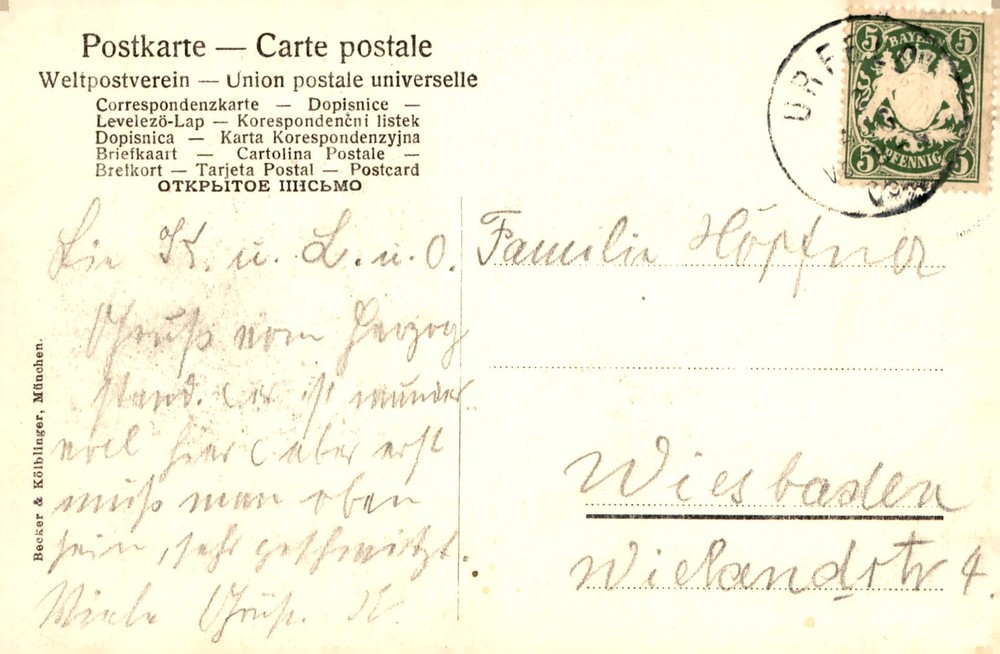 Postkarte — Carte postale
Weltpostverein — Union postale universelle
Correspondenzkarte — Dopisnice —
Levelezö-Lap — Korespondenčni listek
Dopisnica — Karta Korespondenzyjna
Briefkaart — Cartolina Postale —
Brefkort — Tarjeta Postal — Postcard
ОТКРЫТОЕ ПИСЬМО
5 BAYERN 5
5 PFENNIG 5
URFELD
K. u. L. u. O.
Gruß vom Herzog
stand. Es ist wunder
voll hier aber erst
muß man oben
sein, sehr geschwitzt.
Viele Grüße. K.
Familie Höpfner
Wiesbaden
Wielandstr 4.
Becker & Kölblinger, München.